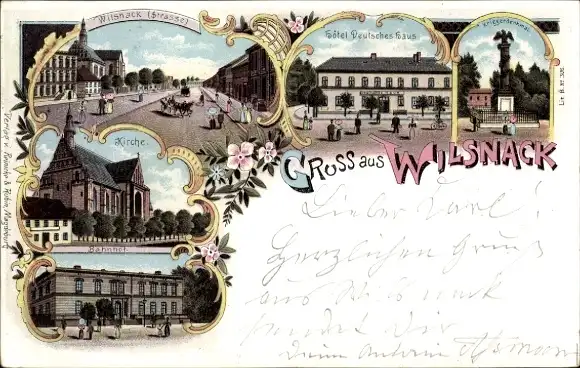 Wilsnack (Strasse)
Hôtel Deutsches Haus
Kriegerdenkmal
Kirche.
Bahnhof.
Gruss aus Wilsnack
Verlag v. Magdeburg
Lieber Karl!
Herzlichen Gruß
aus Wilsnack
sendet Dir
Dein